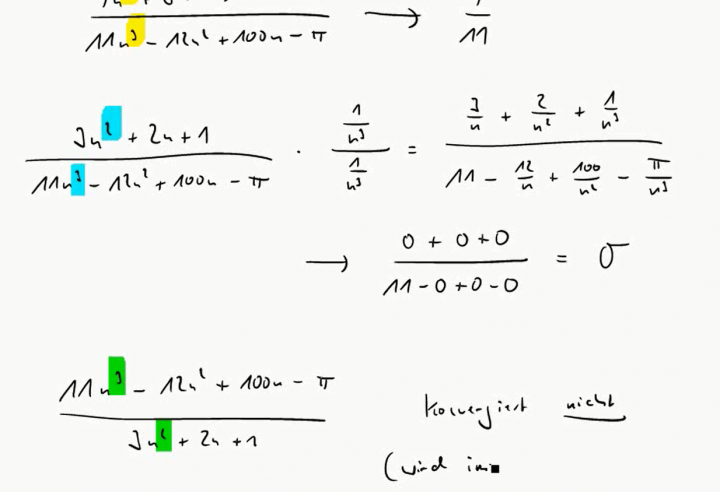 11n³ - 12n² + 100n - π → 1/11
(3n² + 2n + 1)/(11n³ - 12n² + 100n - π) · (1/n³)/(1/n³) = (3/n + 2/n² + 1/n³)/(11 - 12/n + 100/n² - π/n³)
→ (0 + 0 + 0)/(11 - 0 + 0 - 0) = 0
(11n³ - 12n² + 100n - π)/(3n² + 2n + 1) konvergiert nicht
(wird